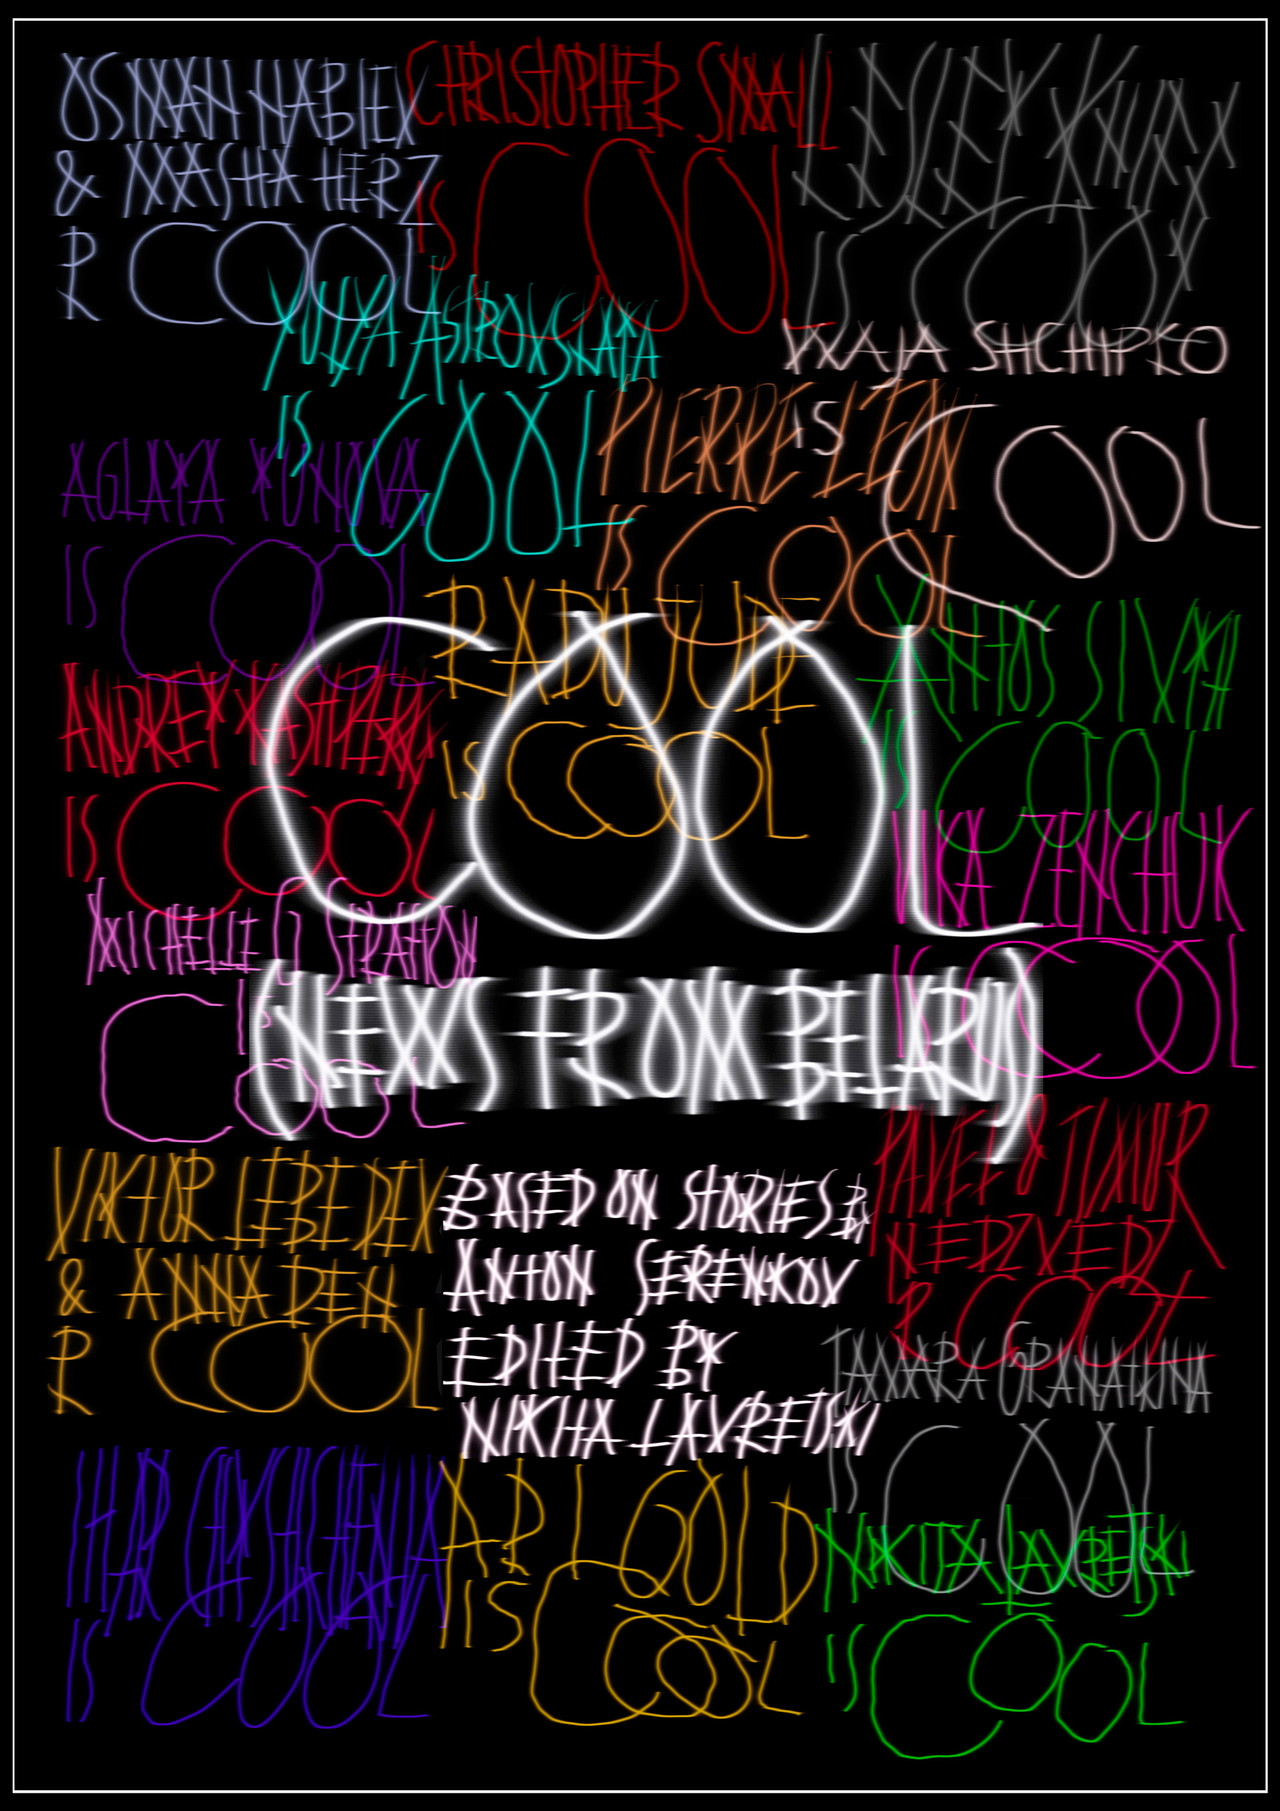 OSMAN NABIEV
& MASHA HERZ
R COOL
CHRISTOPHER SMALL
IS COOL
IS COOL
YULYA ASTROVSKAYA
IS COOL
VANJA SHCHIPKO
IS COOL
PIERRE LÉON
IS COOL
AGLAYA
IS COOL
RADU JUDE
IS COOL
SILVA
IS COOL
ANDREY KASHPERSKI
IS COOL
COOL
(NEWS FROM BELARUS)
MICHELLE STRATTON
IS COOL
NIKA ZENCHUK
IS COOL
VIKTOR LEBEDEV
& ANNA DEN
R COOL
BASED ON STORIES BY
ANTON SERENKOV
EDITED BY
NIKITA LAVRETSKI
PAVEL & TIMUR
R COOL
TAMARA GRANATKINA
IS COOL
IS COOL
APL GOLD
IS COOL
NIKITA LAVRETSKI
IS COOL